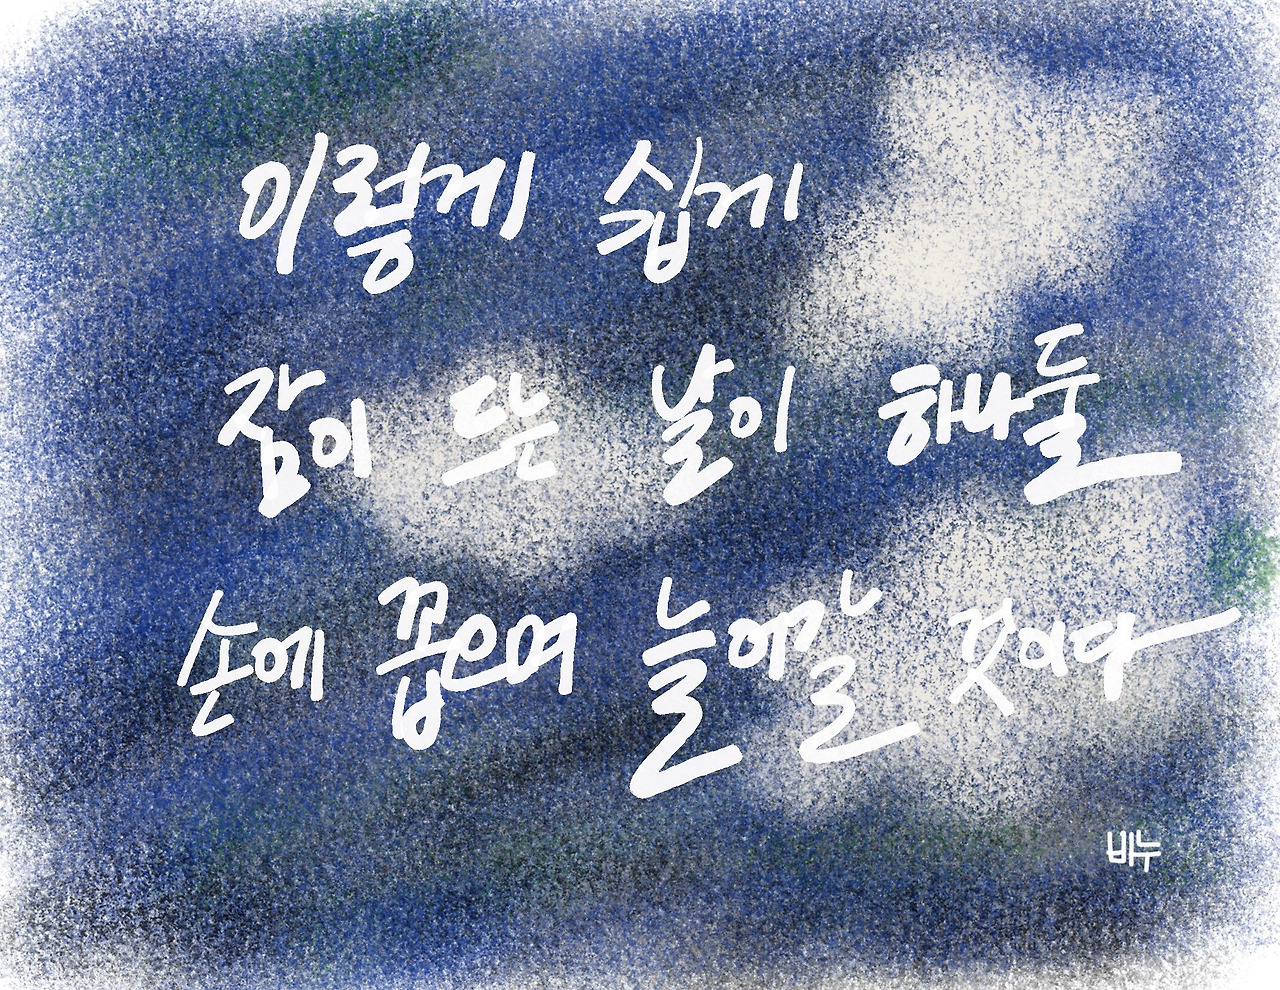 이렇게 쉽게
잠이 드는 날이 하나둘
손에 꼽으며 늘어갈 것이다
비누